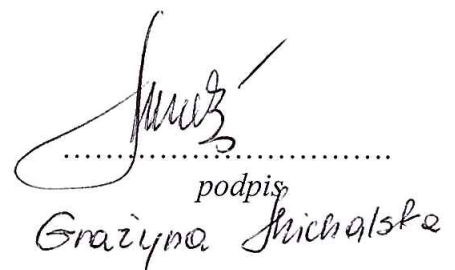 ..............................
podpis
Grażyna Michalska